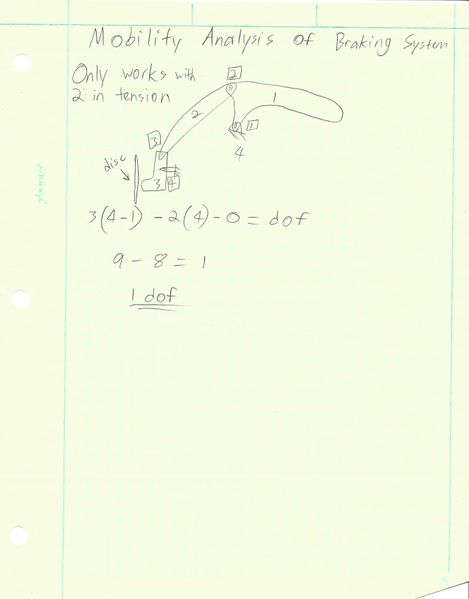 Mobility Analysis of Braking System
Only works with
2 in tension
2
1
2
1
4
3
disc
3
4
3(4-1) - 2(4) - 0 = dof
9 - 8 = 1
1 dof